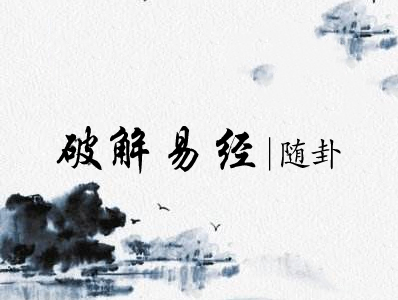 破解易经|随卦